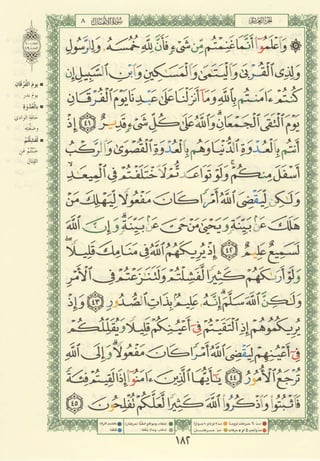 الجزء العاشر
سورة الأنفال
٨
۞ وَاعْلَمُوا أَنَّمَا غَنِمْتُم مِّن شَيْءٍ فَأَنَّ لِلَّهِ خُمُسَهُ وَلِلرَّسُولِ
وَلِذِي الْقُرْبَىٰ وَالْيَتَامَىٰ وَالْمَسَاكِينِ وَابْنِ السَّبِيلِ إِن
كُنتُمْ ءَامَنتُم بِاللَّهِ وَمَا أَنزَلْنَا عَلَىٰ عَبْدِنَا يَوْمَ الْفُرْقَانِ
يَوْمَ الْتَقَى الْجَمْعَانِ وَاللَّهُ عَلَىٰ كُلِّ شَيْءٍ قَدِيرٌ ٤١ إِذْ
أَنتُم بِالْعُدْوَةِ الدُّنْيَا وَهُم بِالْعُدْوَةِ الْقُصْوَىٰ وَالرَّكْبُ
أَسْفَلَ مِنكُمْ وَلَوْ تَوَاعَدتُّمْ لَاخْتَلَفْتُمْ فِي الْمِيعَادِ
وَلَٰكِن لِّيَقْضِيَ اللَّهُ أَمْرًا كَانَ مَفْعُولًا لِّيَهْلِكَ مَنْ
هَلَكَ عَن بَيِّنَةٍ وَيَحْيَىٰ مَنْ حَيَّ عَن بَيِّنَةٍ وَإِنَّ اللَّهَ
لَسَمِيعٌ عَلِيمٌ ٤٢ إِذْ يُرِيكَهُمُ اللَّهُ فِي مَنَامِكَ قَلِيلًا
وَلَوْ أَرَاكَهُمْ كَثِيرًا لَّفَشِلْتُمْ وَلَتَنَازَعْتُمْ فِي الْأَمْرِ
وَلَٰكِنَّ اللَّهَ سَلَّمَ إِنَّهُ عَلِيمٌ بِذَاتِ الصُّدُورِ ٤٣ وَإِذْ
يُرِيكُمُوهُمْ إِذِ الْتَقَيْتُمْ فِي أَعْيُنِكُمْ قَلِيلًا وَيُقَلِّلُكُمْ
فِي أَعْيُنِهِمْ لِيَقْضِيَ اللَّهُ أَمْرًا كَانَ مَفْعُولًا وَإِلَى اللَّهِ
تُرْجَعُ الْأُمُورُ ٤٤ يَا أَيُّهَا الَّذِينَ ءَامَنُوا إِذَا لَقِيتُمْ فِئَةً
فَاثْبُتُوا وَاذْكُرُوا اللَّهَ كَثِيرًا لَّعَلَّكُمْ تُفْلِحُونَ ٤٥
■ يوم الفرقان
يوم بدر
■ بالعدوة
حافة الوادي
وضفته
■ لفشلتم
القتال
١٨٢